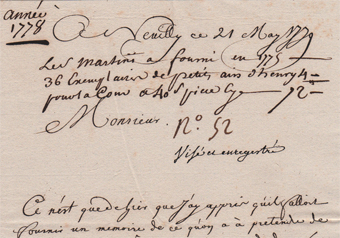 année
1778
A Neuilly ce 21 May 1779
Les martinn a fourni en 1775
36 Exemplaire de petits airs d'henry 4
pour la Cour a 40 s piece Cy 72
Monsieur
N.º 52
Visé et enregistré
Ce n'est que d'hier que J'ay appris qu'il falloit
fournir un memoire de ce qu'on a à pretendre de